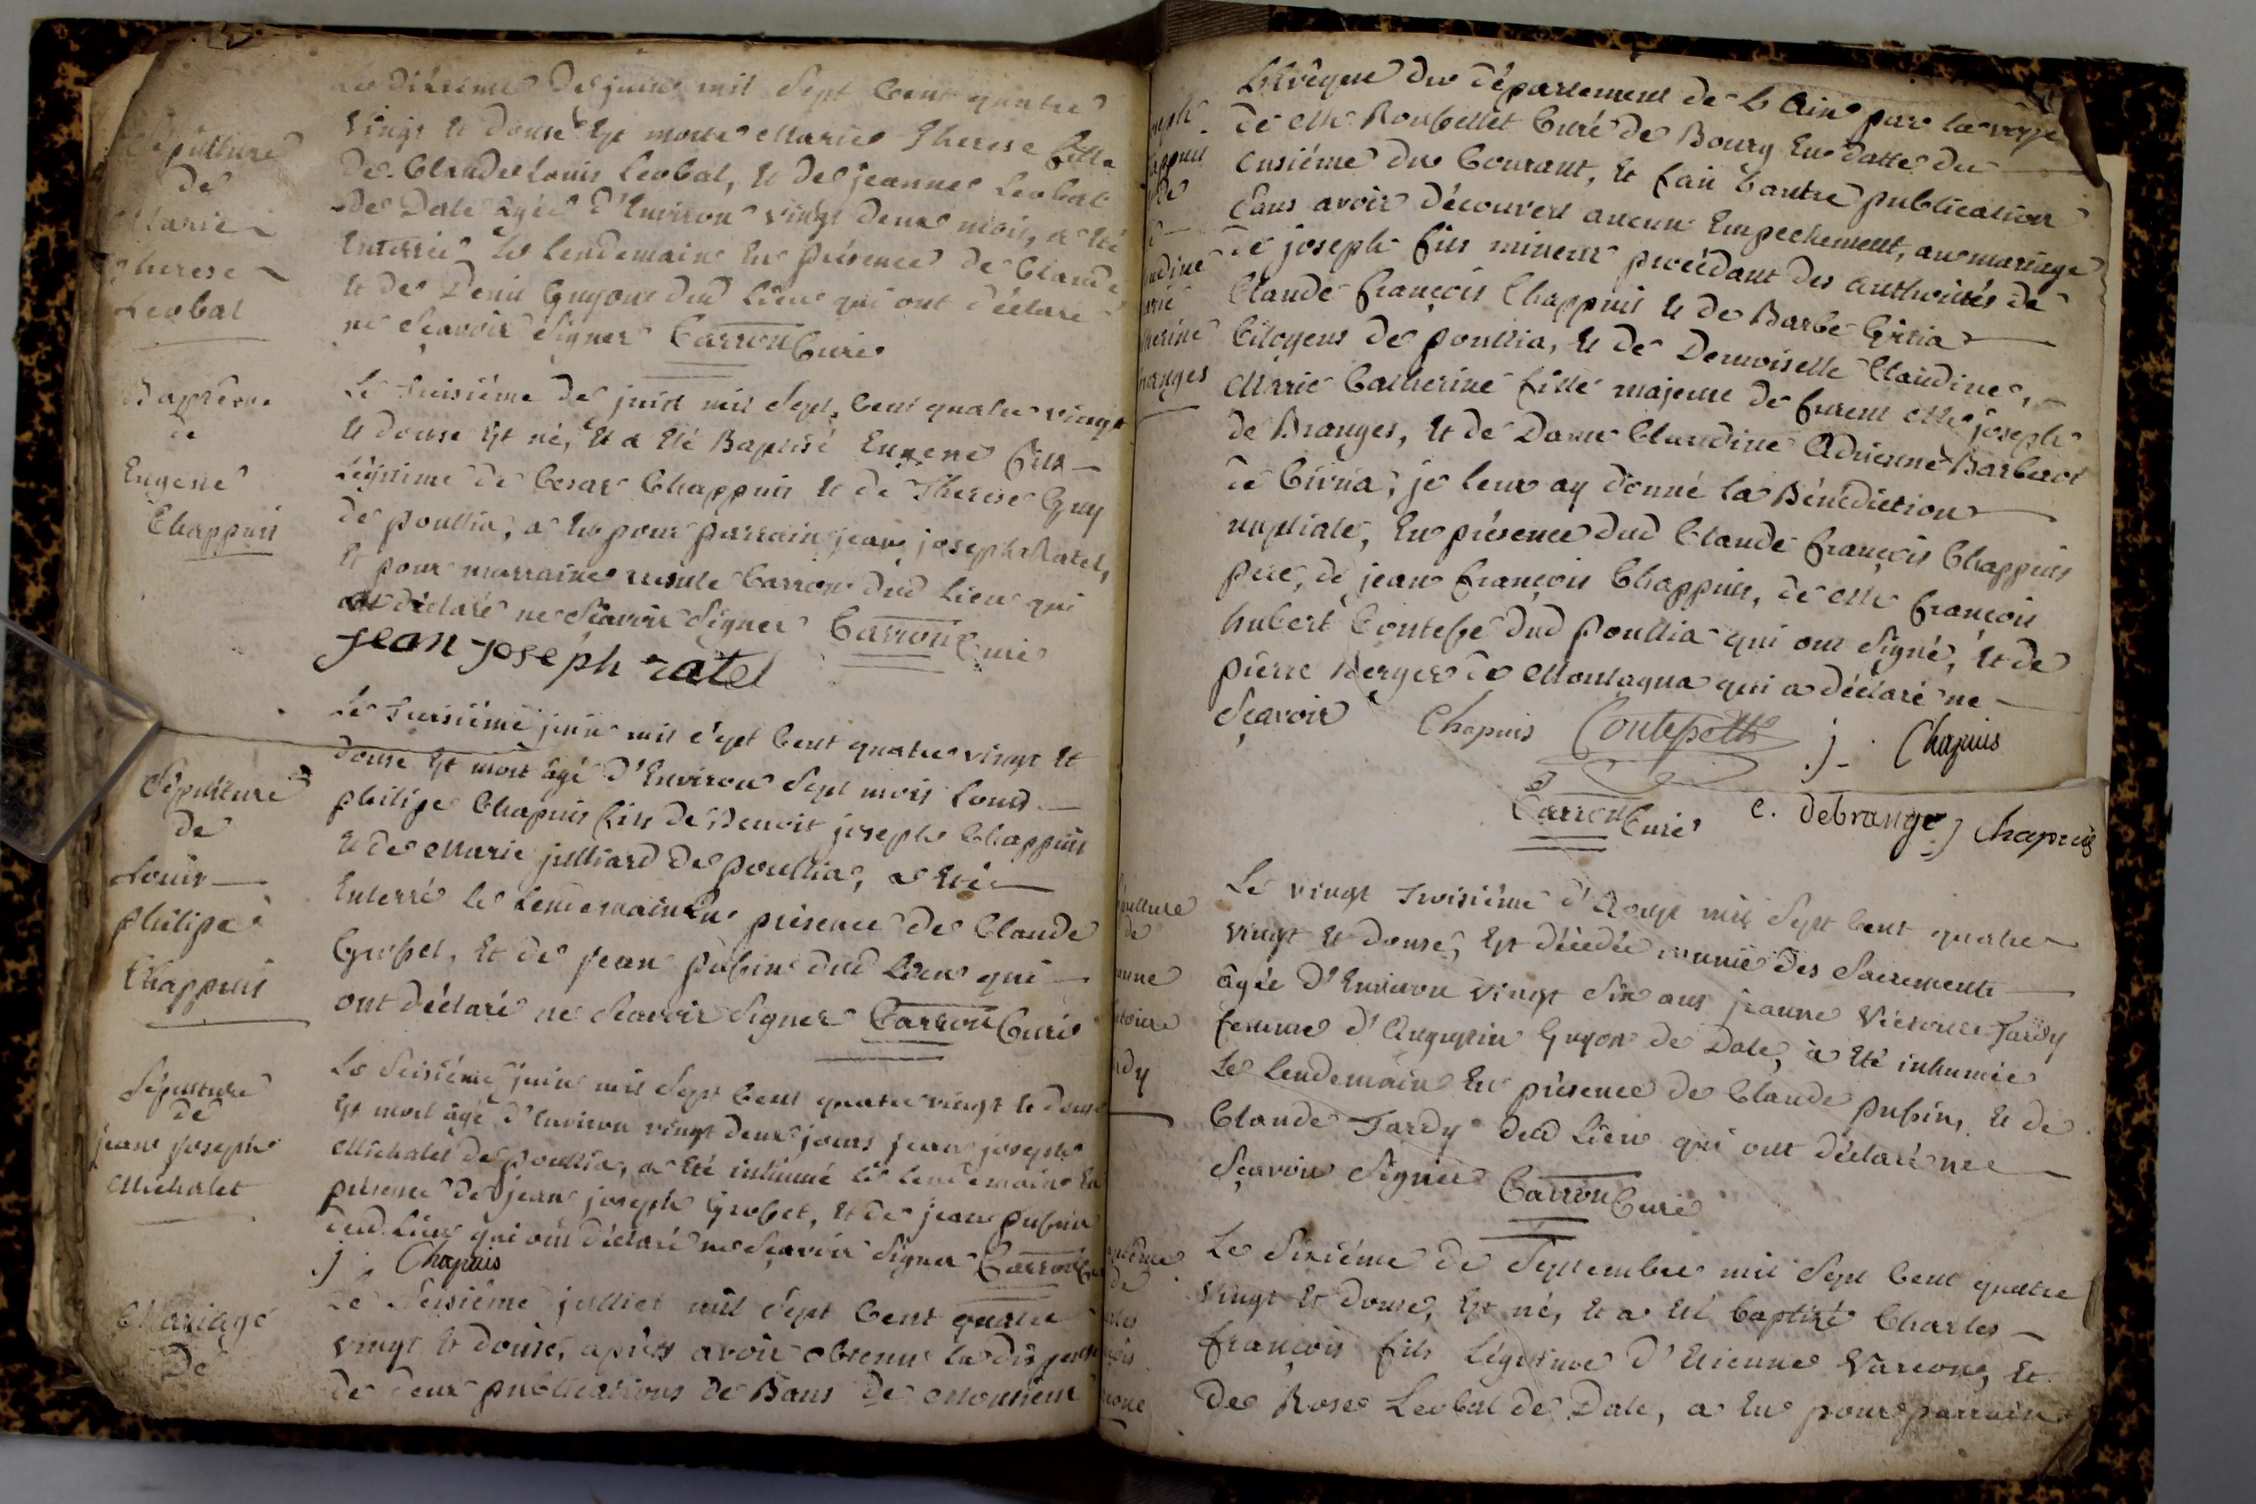 Sépulture
de
Marie
Therese
Leobal
Le dixieme de juin mil sept cent quatre
vingt et douse est morte Marie Therese fille
de Claude Louis Leobal, et de jeanne Leobal
de Dale agée d'Environ vingt deux mois, a été
Enterrée le lendemain En présence de Claude
et de Denis Guyon dud Lieu qui ont déclaré
ne Sçavoir Signer Carron Curé
Baptême
de
Eugene
Chappuis
Le treisiéme de juin mil Sept Cent quatre vingt
et douse Est né, et a été Baptisé Eugene fils
Légitime de Cesar Chappuis et de Therese Guy
de poullia, a Eu pour parrain jean joseph Ratel,
et pour marraine ursule Carron dud Lieu qui
ont déclaré ne Sçavoir Signer Carron Curé
jean joseph ratel
Sépulture
de
Louis
philipe
Chappuis
Le treisiéme juin mil sept Cent quatre vingt et
douse Est mort âgé d'Environ Sept mois Louis
philipe Chapuis fils de Benoit joseph Chappuis
et de Marie julliard de poullia, a été
Enterré le Lendemain En présence de Claude
Grosset, et de jean pubin dud Lieu qui
ont déclaré ne Sçavoir Signer Carron Curé
Sépulture
de
jean joseph
Michalet
Le Seisiéme juin mil Sept Cent quatre vingt et douse
Est mort âgé d'Environ vingt deux jours jean joseph
Michalet de poullia, a été inhumé le lendemain En
présence de jean joseph Grosset, et de jean pubin
dud Lieu qui ont déclaré ne Sçavoir Signer Carron
j. Chapuis
Mariage
De
Le Seisiéme julliet mil Sept Cent quatre
vingt et douse, après avoir obtenu la dispense
de deux publications de Bans de Monsieur
joseph
Chappuis
de
Claudine
Marie
Catherine
Branges
L'Evêque du département de l'Ain par la voye
de Mr. Roubellet Curé de Bourg En datte du
onsiéme du Courant, et fait L'autre publication
Sans avoir découvert aucun Empechement, au mariage
de joseph fils mineur procédant des Authorités de
Claude françois Chappuis et de Barbe
Citoyens de poullia, et de Demoiselle Claudine
Marie Catherine fille majeure de furent Mr joseph
de Branges, et de Dame Claudine Adrienne Barberot
de Civria; je leur ay donné la Bénédiction
nuptiale, En présence dud Claude françois Chappuis
pere, de jean françois Chappuis, de Mr françois
hubert Contesse dud poullia qui ont Signé, et de
pierre Verger de Montagna qui a déclaré ne
Sçavoir Chapuis j. Chapuis
Carron Curé c. debrange j Chapuis
Sépulture
de
jeanne
Victoire
Tardy
Le vingt troisiéme d'Aoust mil Sept Cent quatre
vingt et douse, Est décédée munie des Sacrements
âgée d'Environ vingt Six ans jeanne Victoire Tardy
femme d'Augustin Guyon de Dale, a été inhumée
Le lendemain En présence de Claude pubin, et de
Claude Tardy dud Lieu qui ont déclaré ne
Sçavoir Signer Carron Curé
Baptême
de
Charles
françois
Le Sixiéme de Septembre mil Sept Cent quatre
vingt et douse, Est né, et a été baptisé Charles
françois fils Légitime d'Etienne Varcon, et
de Rose Leobal de Dale, a Eu pour parrain